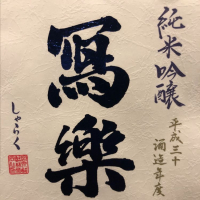 純米吟醸
平成三十
酒造年度
寫樂
しゃらく